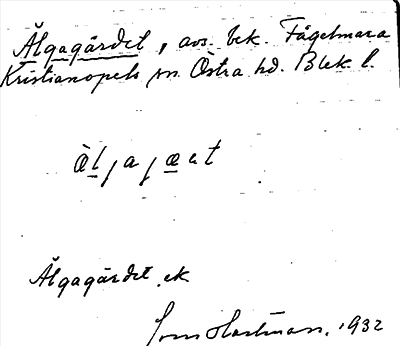 Älgagärdet, avs. bek. Fågelmara
Kristianopels sn. Östra hd. Blek l.
Älgagärdet ek
Hartman. 1932